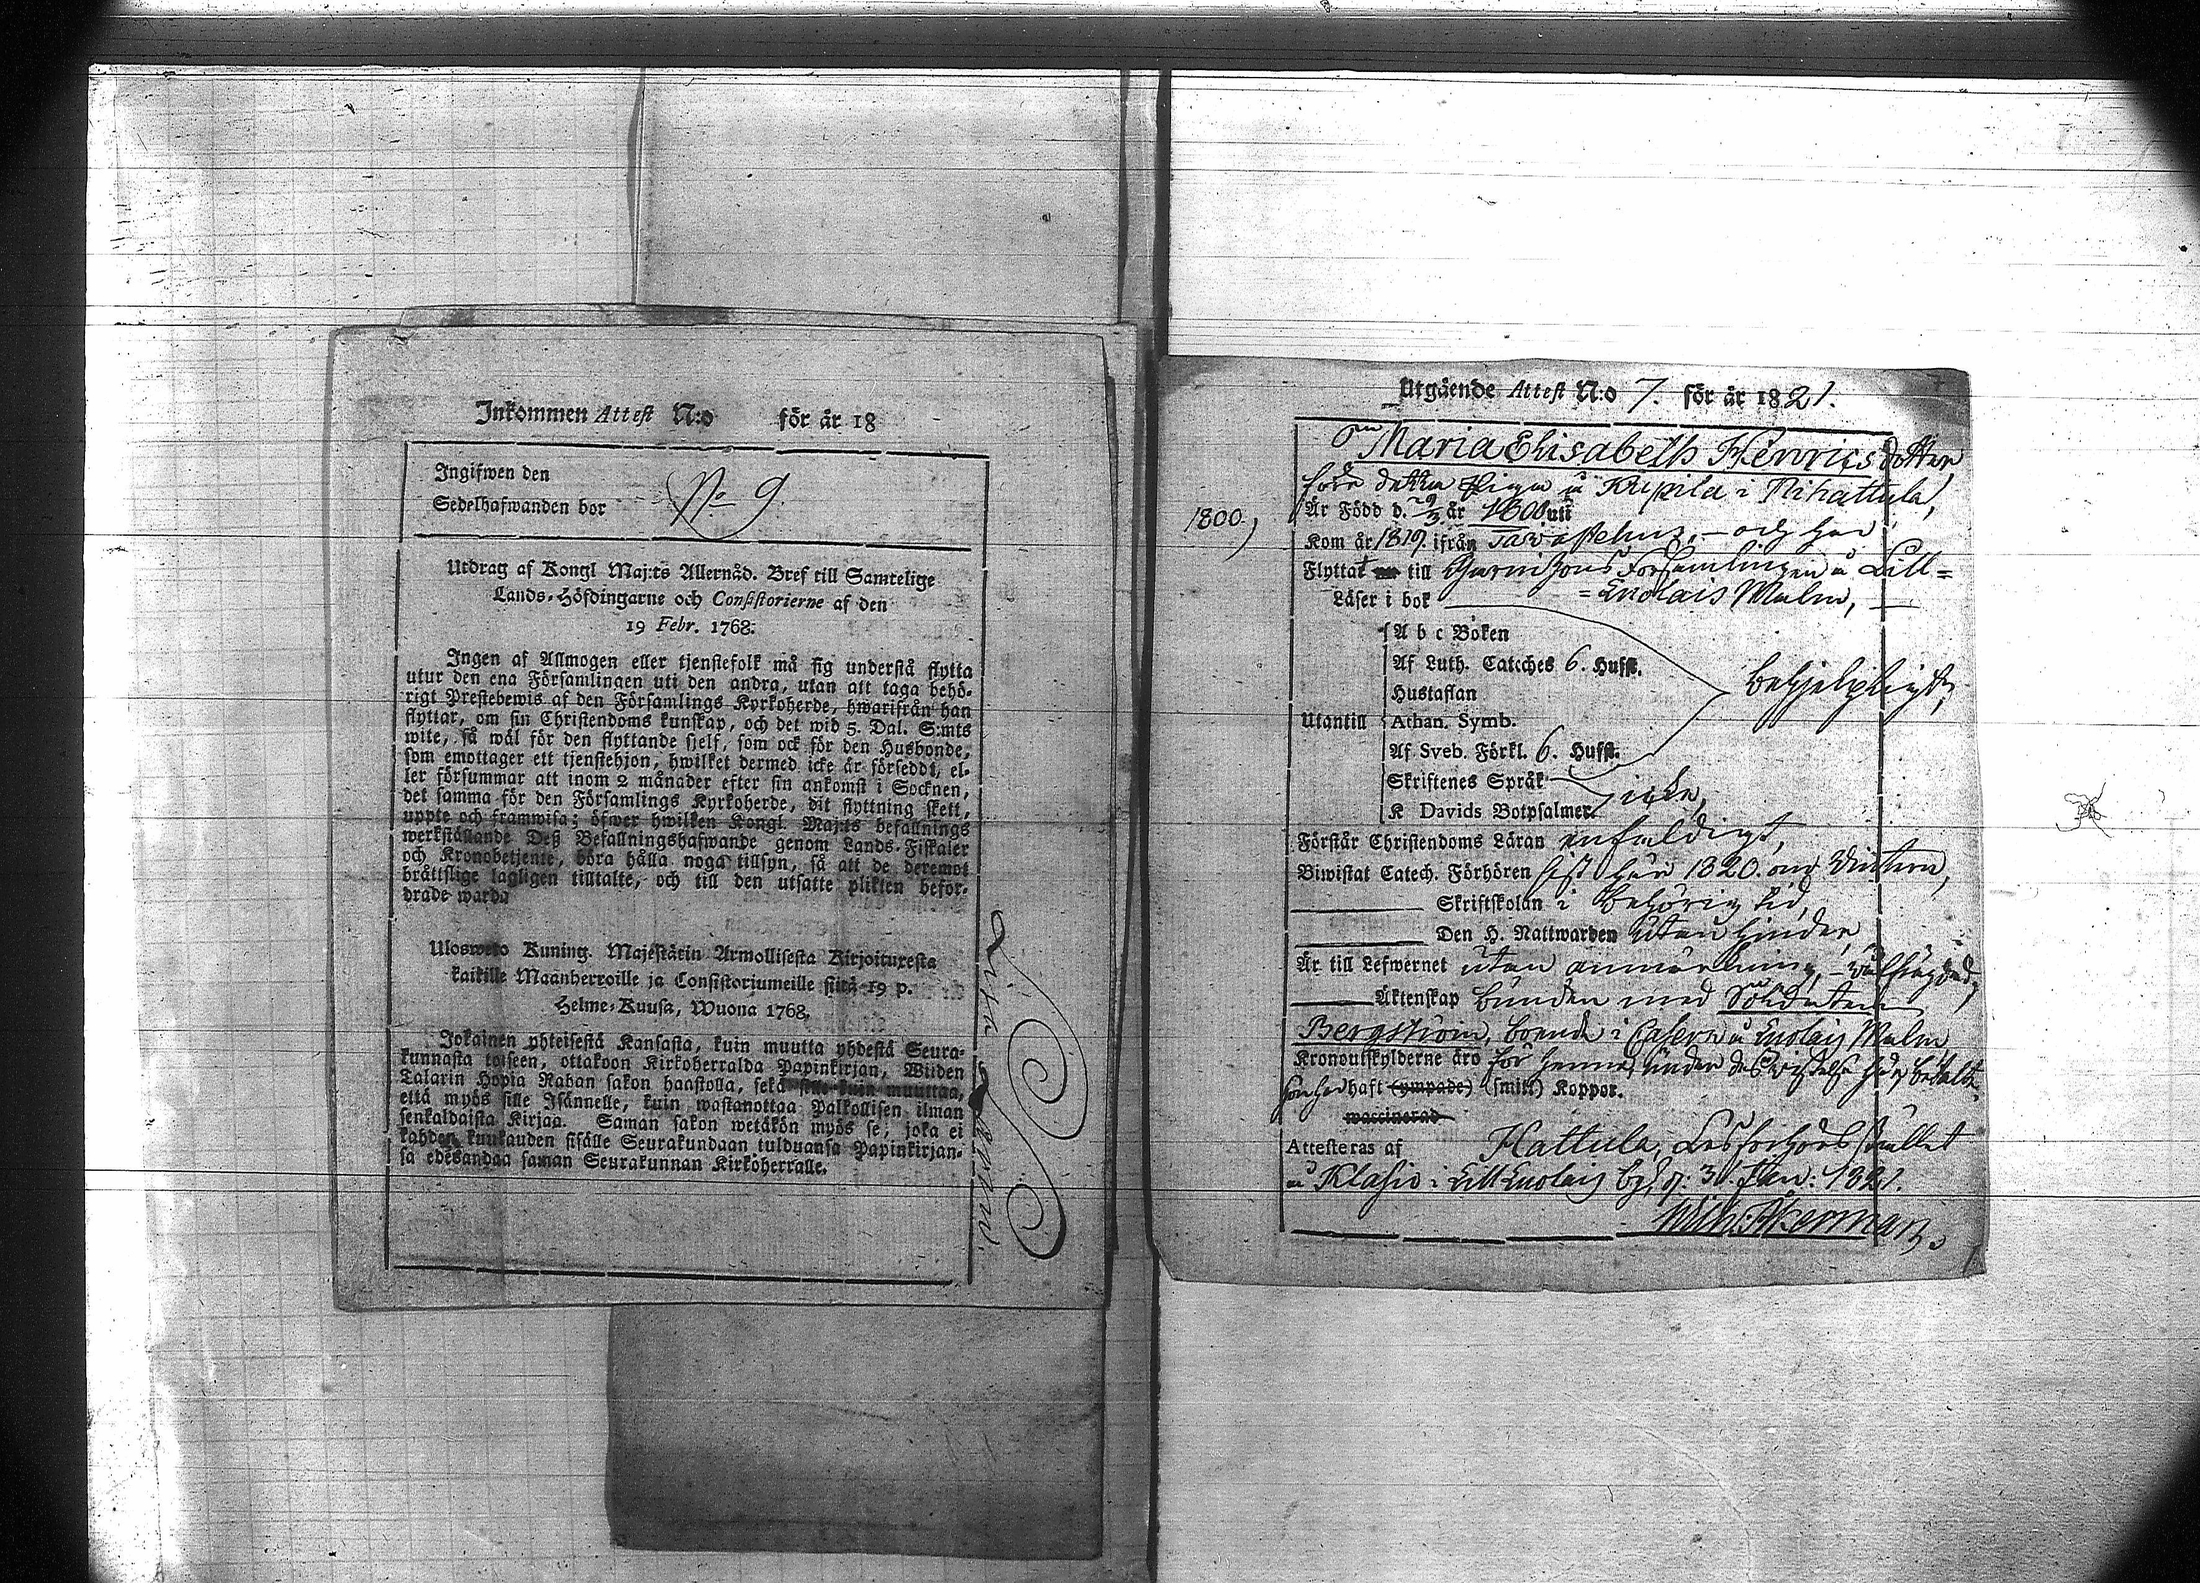 Inkommen Attest N:o för år 18
Ingifwen den
Sedelhafwanden bor
No 9.
Utdrag af Kongl Maj:ts Allernåd. Bref till Samtelige
Lands-Höfdingarne och Consistorierne af den
19 Febr. 1768.
Ingen af Allmogen eller tjenstefolk må sig understå flytta
utur den ena Församlingen uti den andra, utan att taga behö-
rigt Prestebewis af den Församlings Kyrkoherde, hwarifrån han
flyttar, om sin Christendoms kunskap, och det wid 5. Dal. S:mts
wite, så wäl för den flyttande sjelf, som ock för den Husbonde,
som emottager ett tjenstehjon, hwilket dermed icke är försedt, el-
ler försummar att inom 2 månader efter sin ankomst i Socknen,
det samma för den Församlings Kyrkoherde, dit flyttning skett,
uppte och framwisa; öfwer hwilken Kongl. Maj:ts befallnings
werkställande Deß Befallningshafwande genom Lands-Fiskaler
och Kronobetjente, böra hålla noga tillsyn, så att de deremot
brättslige lagligen tilltalte, och till den utsatte plikten befor-
drade warda
Ulosweto Kuning. Majestätin Armollisesta Kirjoituresta
kaikille Maanherroille ja Consistoriumeille siitä 19 p.
Helme-Kuusa, Wuona 1768.
Jokainen yhteisestä Kansasta, kuin muutta yhdestä Seura-
kunnasta toiseen, ottakoon Kirkoherralda Papinkirjan, Wiiden
Talarin Hopia Rahan sakon haastolla, sekä sille kuin muuttaa,
että myös sille Isännelle, kuin wastanottaa Palkollisen ilman
senkaldaista Kirjaa. Saman sakon wetäkön myös se, joka ei
kahden kuukauden sisälle Seurakundaan tulduansa Papinkirjan-
sa edesandaa saman Seurakunnan Kirkoherralle.
Utgående Attest N:o 7. för år 1821.
Maria Elisabeth Henricsdotter
före detta Piga å Krepila i Nihattula,
1800.,
Är Född d. 29/3 år 1800 uti
Kom år 1819. ifrån Tavastehus, – och har
Flyttat till Garnizons Församlingen å Lill=
=Enolais Malm,
Läser i bok
A b c Boken
Af Luth. Cateches 6. Hufst.
Hustaflan
behjelpligt,
Utantill Athan. Symb.
Af Sveb. Förkl. 6. Hufst.
Skriftenes Språk
icke,
K Davids Botpsalmer
Förstår Christendoms Läran enfaldigt,
Biwistat Catech. Förhören sist här 1820. om Vintern,
Skriftskolan i behörig tid,
Den H. Nattwarden utan hinder,
Är till Lefwernet utan anmärkning, – wälfrägdad,
Äktenskap bunden med Soldaten
Bergström, boende i Casern å Enolais Malm
Kronoutskylderne äro för henne, under dess wistelse här betalte.
haft (ympade) (smitt) Koppor.
wassinerad
Attesteras af Hattula, Läsförhörs stället
å Klasio i Lill Enolais d. 31. Jan: 1821.
Wilh: Åkerman.